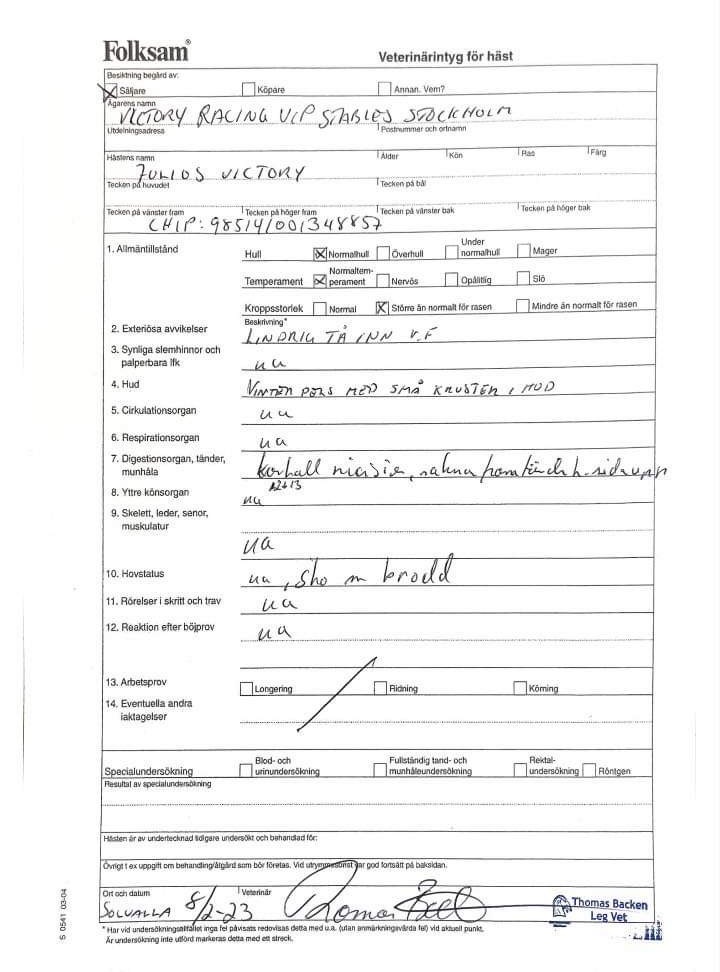 Folksam®
Veterinärintyg för häst
Besiktning begärd av:
Säljare Köpare Annan. Vem?
Ägarens namn
VICTORY RACING VIP STABLES STOCKHOLM
Utdelningsadress Postnummer och ortnamn
Hästens namn Ålder Kön Ras Färg
JULIOS VICTORY
Tecken på huvudet Tecken på bål
Tecken på vänster fram Tecken på höger fram Tecken på vänster bak Tecken på höger bak
CHIP: 985141001348857
1. Allmäntillstånd Hull Normalhull Överhull Under normalhull Mager
Temperament Normaltemperament Nervös Opålitlig Slö
Kroppsstorlek Normal Större än normalt för rasen Mindre än normalt för rasen
Beskrivning*
2. Exteriösa avvikelser LINDRIG TÅ INN V.F
3. Synliga slemhinnor och
palperbara lfk ua
4. Hud VINTER PÄLS MED SMÅ KRUSTER I HUD
5. Cirkulationsorgan ua
6. Respirationsorgan ua
7. Digestionsorgan, tänder,
munhåla
8. Yttre könsorgan ua
9. Skelett, leder, senor,
muskulatur
ua
10. Hovstatus ua, sko m brodd
11. Rörelser i skritt och trav ua
12. Reaktion efter böjprov ua
13. Arbetsprov Longering Ridning Körning
14. Eventuella andra
iaktagelser
Specialundersökning Blod- och urinundersökning Fullständig tand- och munhåleundersökning Rektal-undersökning Röntgen
Resultat av specialundersökning
Hästen är av undertecknad tidigare undersökt och behandlad för:
Övrigt t ex uppgift om behandling/åtgärd som bör företas. Vid utrymmesbrist var god fortsätt på baksidan.
Ort och datum Veterinär
SOLVALLA 8/2-23
Thomas Backen
Leg Vet
* Har vid undersökningstillfället inga fel påvisats redovisas detta med u.a. (utan anmärkningsvärda fel) vid aktuell punkt.
Är undersökning inte utförd markeras detta med ett streck.
S 0541 03-04